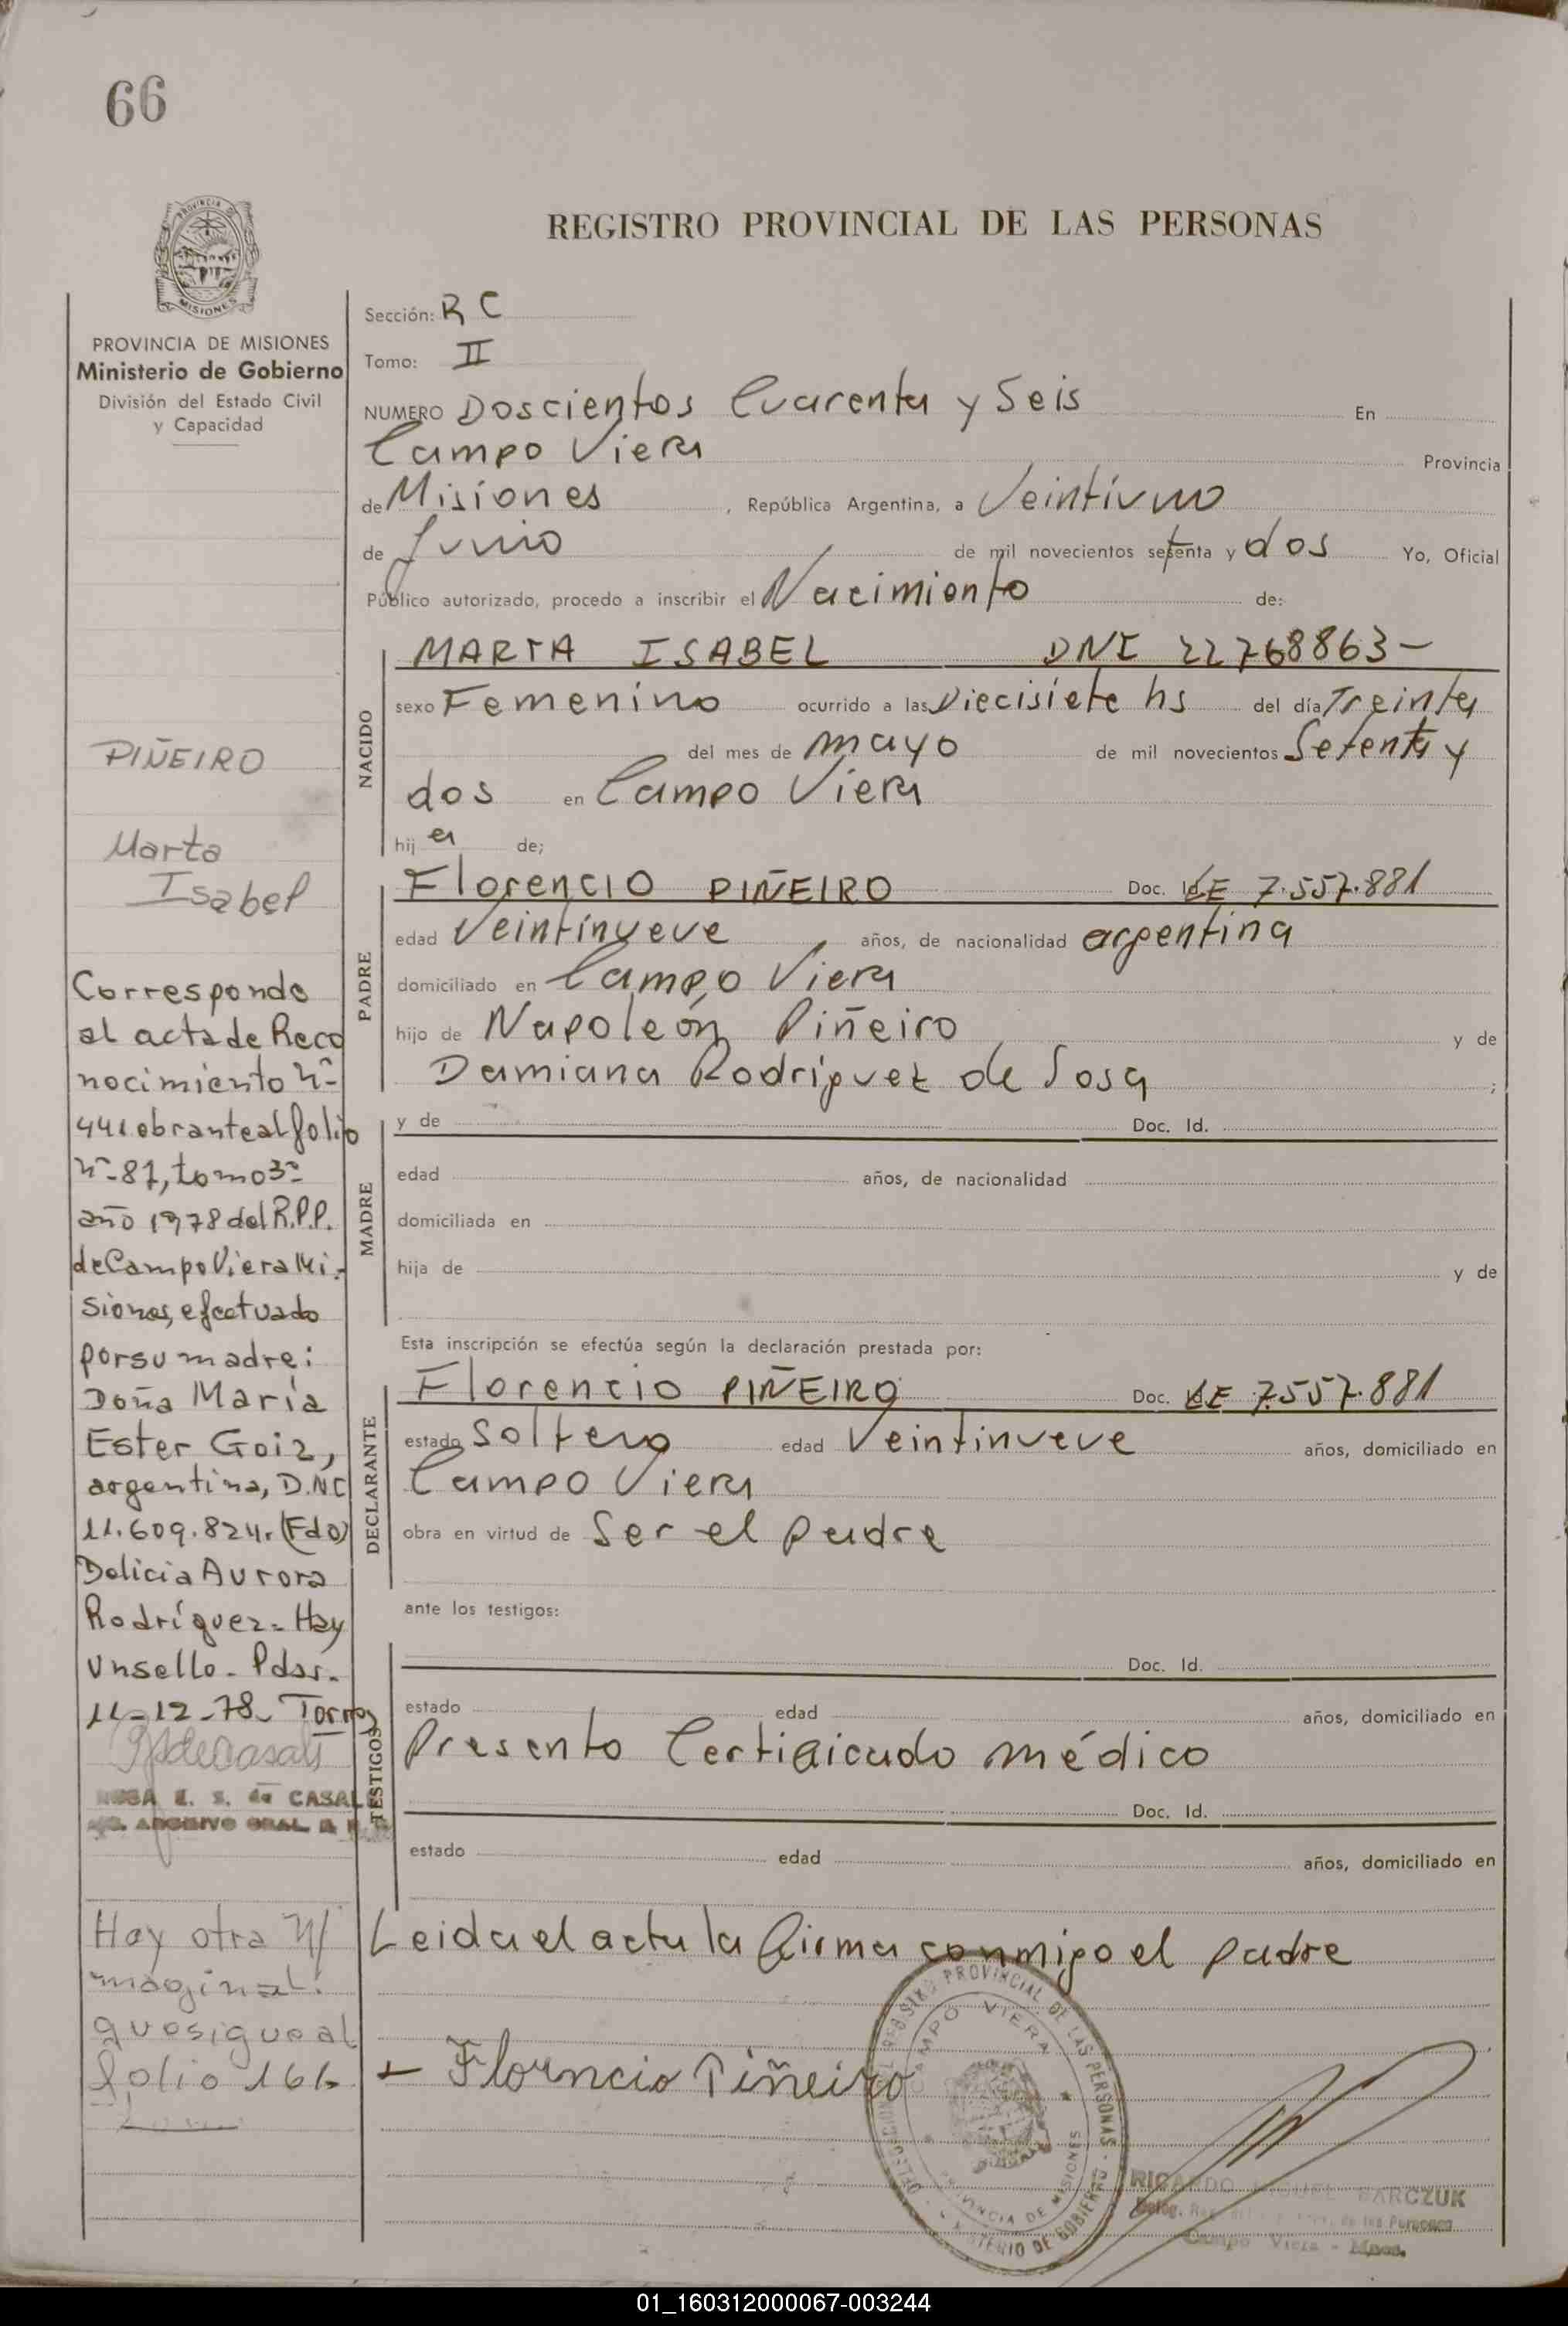 66
REGISTRO PROVINCIAL DE LAS PERSONAS
PROVINCIA DE
MISIONES
PROVINCIA DE MISIONES
Ministerio de Gobierno
División del Estado Civil
y Capacidad
PIÑEIRO
Marta
Isabel
Corresponde
al acta de Reco
nocimiento nº
441 obrante al folio
nº-87, tomo 3º
año 1978 del R.P.P.
de Campo Viera Mi-
siones, efectuado
por su madre:
Doña María
Ester Goiz,
argentina, D.N.I
11.609.824. (Fdo)
Delicia Aurora
Rodríguez= Hay
un sello. Pdas.
11-12-78. Torres
ROSA E. S. de CASALS
ARCHIVO GRAL. R. P. P.
Hay otra N/
maginal:
que sigue al
folio 166
Sección: R C
Tomo: II
NUMERO Doscientos Cuarenta y Seis En
Campo Viera Provincia
de Misiones, República Argentina, a Veintiuno
de Junio de mil novecientos setenta y dos Yo, Oficial
Público autorizado, procedo a inscribir el Nacimiento de:
NACIDO
MARTA ISABEL DNI 22768863-
sexo Femenino ocurrido a las Diecisiete hs del día Treinta
del mes de mayo de mil novecientos Setenta y
dos en Campo Viera
hija de;
PADRE
Florencio PIÑEIRO Doc. Id. LE 7.557.881
edad Veintinueve años, de nacionalidad argentina
domiciliado en Campo Viera
hijo de Napoleón Piñeiro y de
Damiana Rodríguez de Sosa ;
MADRE
y de Doc. Id.
edad años, de nacionalidad
domiciliada en
hija de y de
Esta inscripción se efectúa según la declaración prestada por:
DECLARANTE
Florencio PIÑEIRO Doc. LE 7.557.881
estado Soltero edad Veintinueve años, domiciliado en
Campo Viera
obra en virtud de Ser el padre
ante los testigos:
TESTIGOS
Doc. Id.
estado edad años, domiciliado en
Presento Certificado médico
Doc. Id.
estado edad años, domiciliado en
Leida el acta la firma conmigo el padre
Florncio Piñeiro
REGISTRO PROVINCIAL DE LAS PERSONAS
CAMPO VIERA
PROVINCIA DE MISIONES
MINISTERIO DE GOBIERNO
RICARDO MIGUEL BARCZUK
Deleg. Reg. de las Personas
Campo Viera - Mnes.
01_160312000067-003244